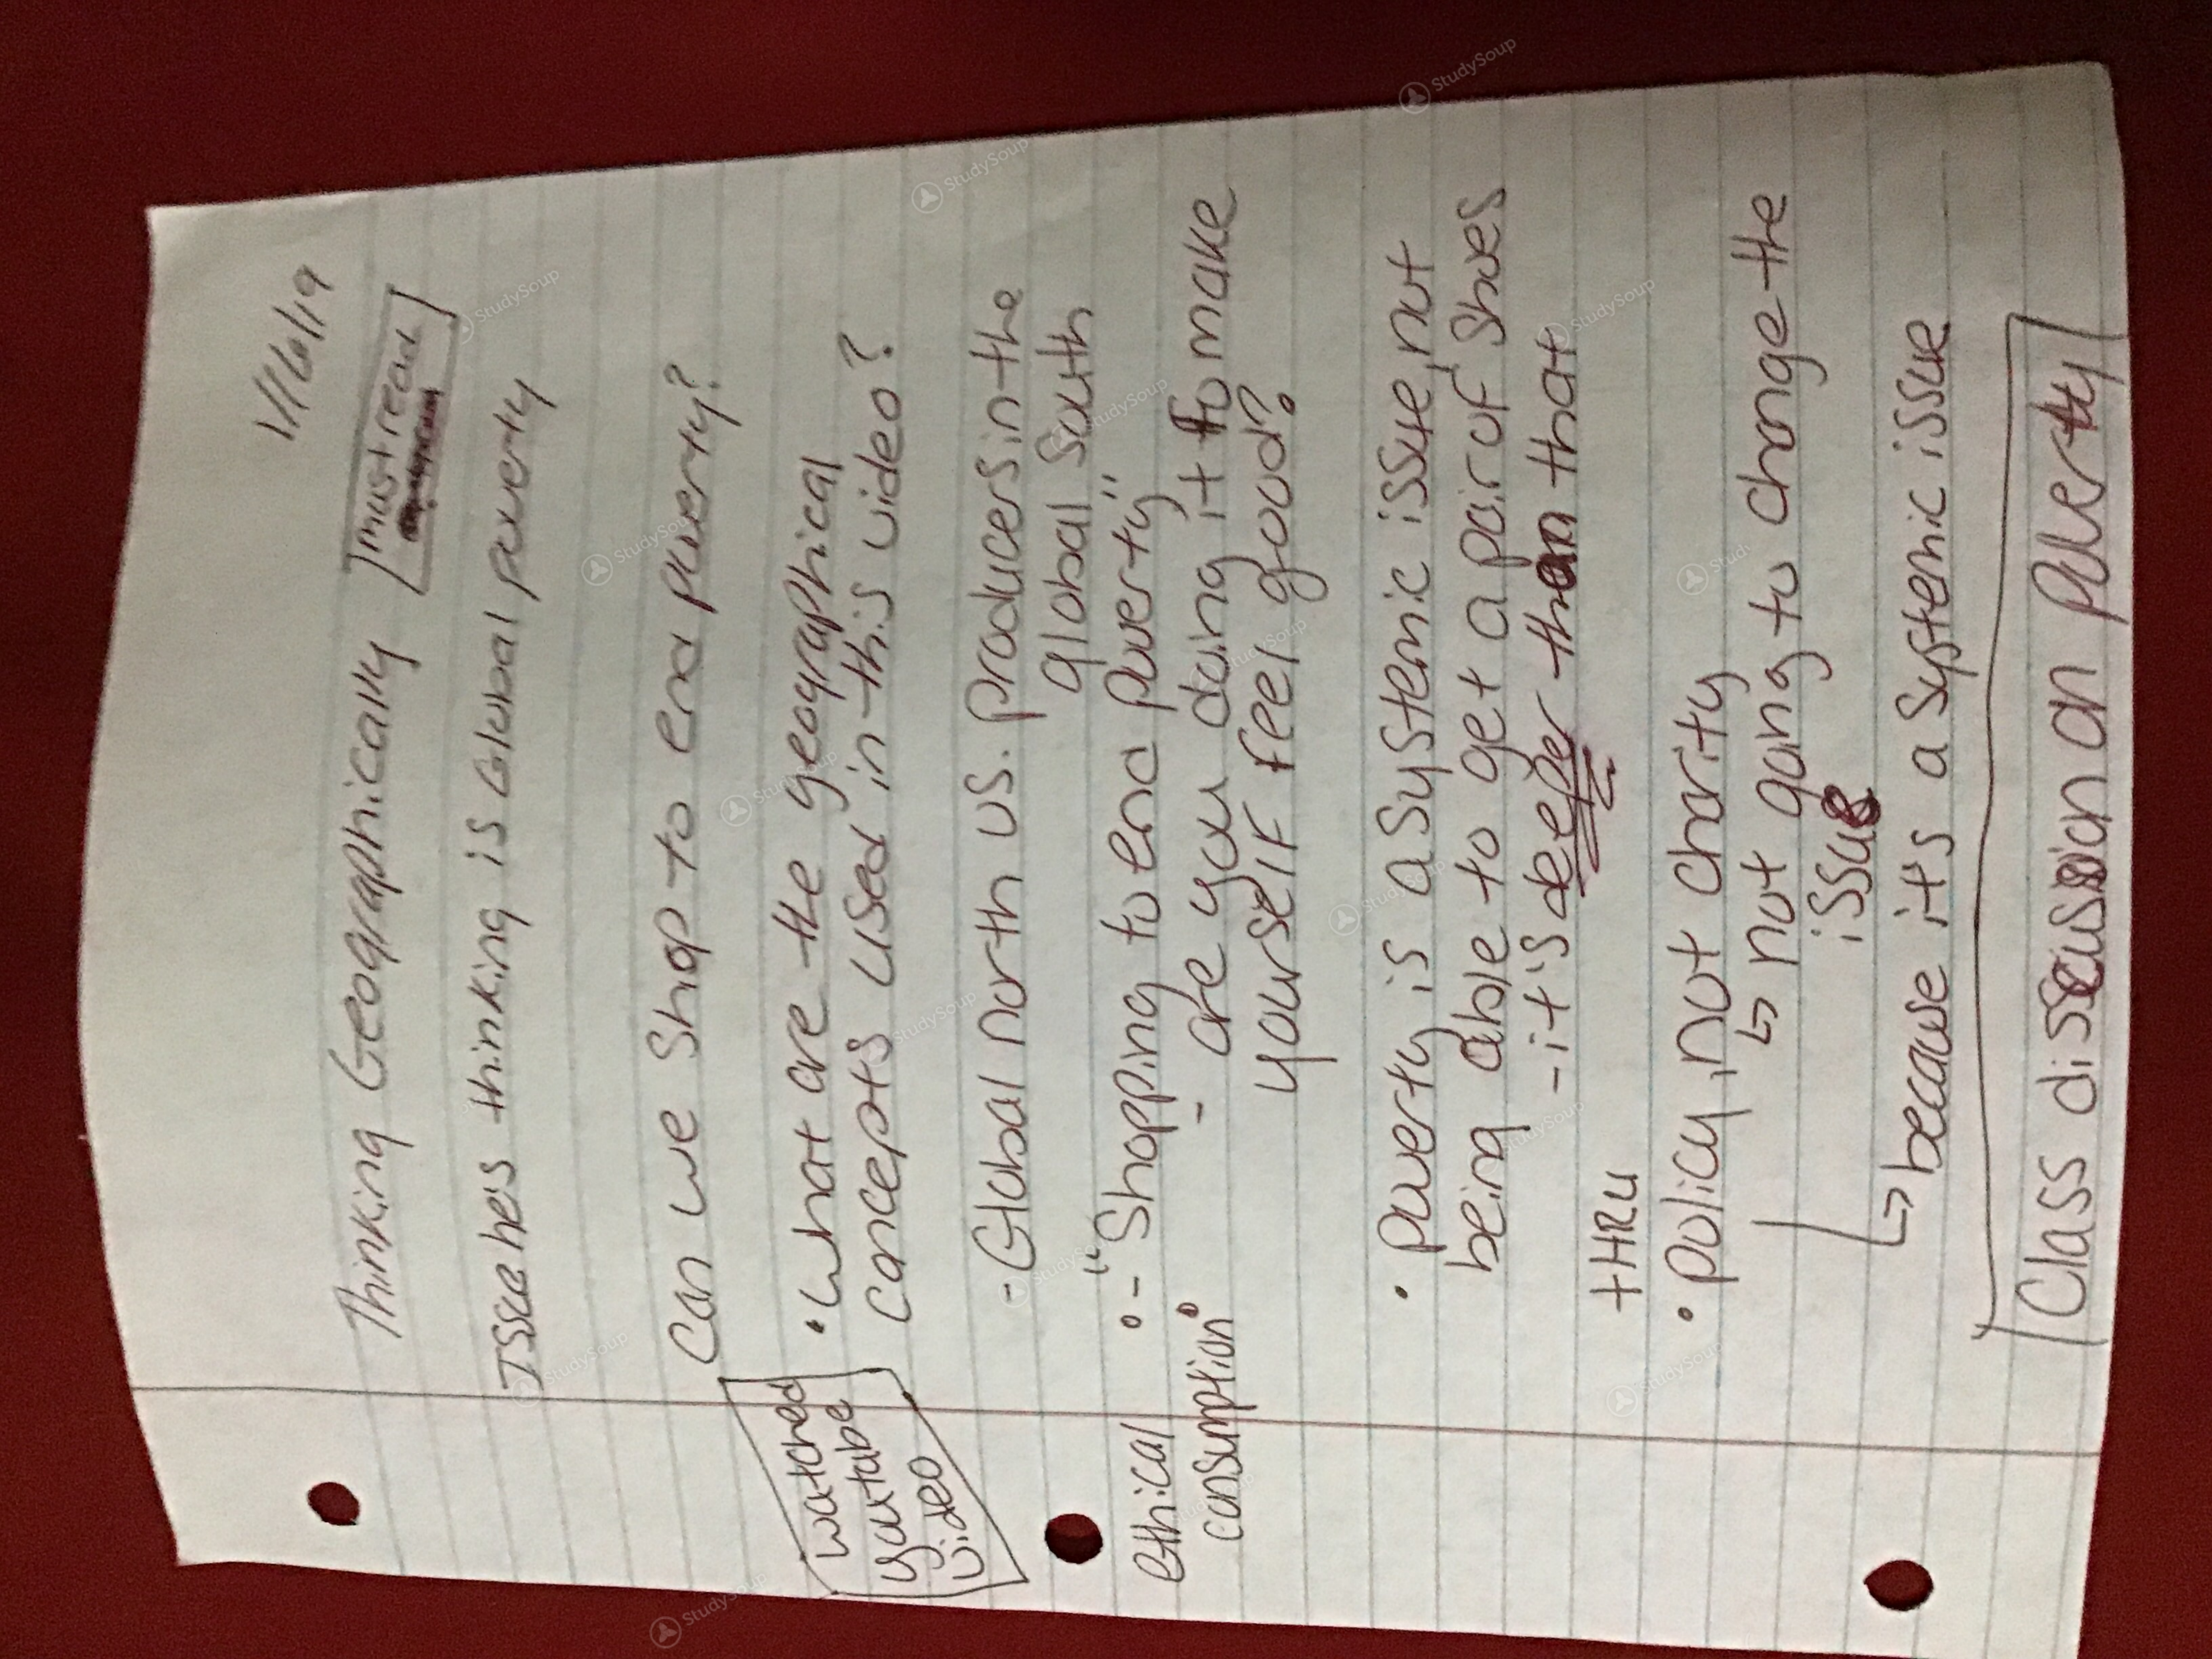 1/16/19
Thinking Geographically
must read
Issue he's thinking is Global poverty
Can we shop to end poverty?
watched
youtube
video
• What are the geographical
concepts used in this video?
- Global north vs. producers in the
global south
ethical
consumption
- "Shopping to end poverty"
- are you doing it to make
yourself feel good?
• poverty is a systemic issue, not
being able to get a pair of shoes
- it's deeper than that
THRU
• policy, not charity
↳ not going to change the
issue
↳ because it's a systemic issue
Class discussion on poverty
StudySoup